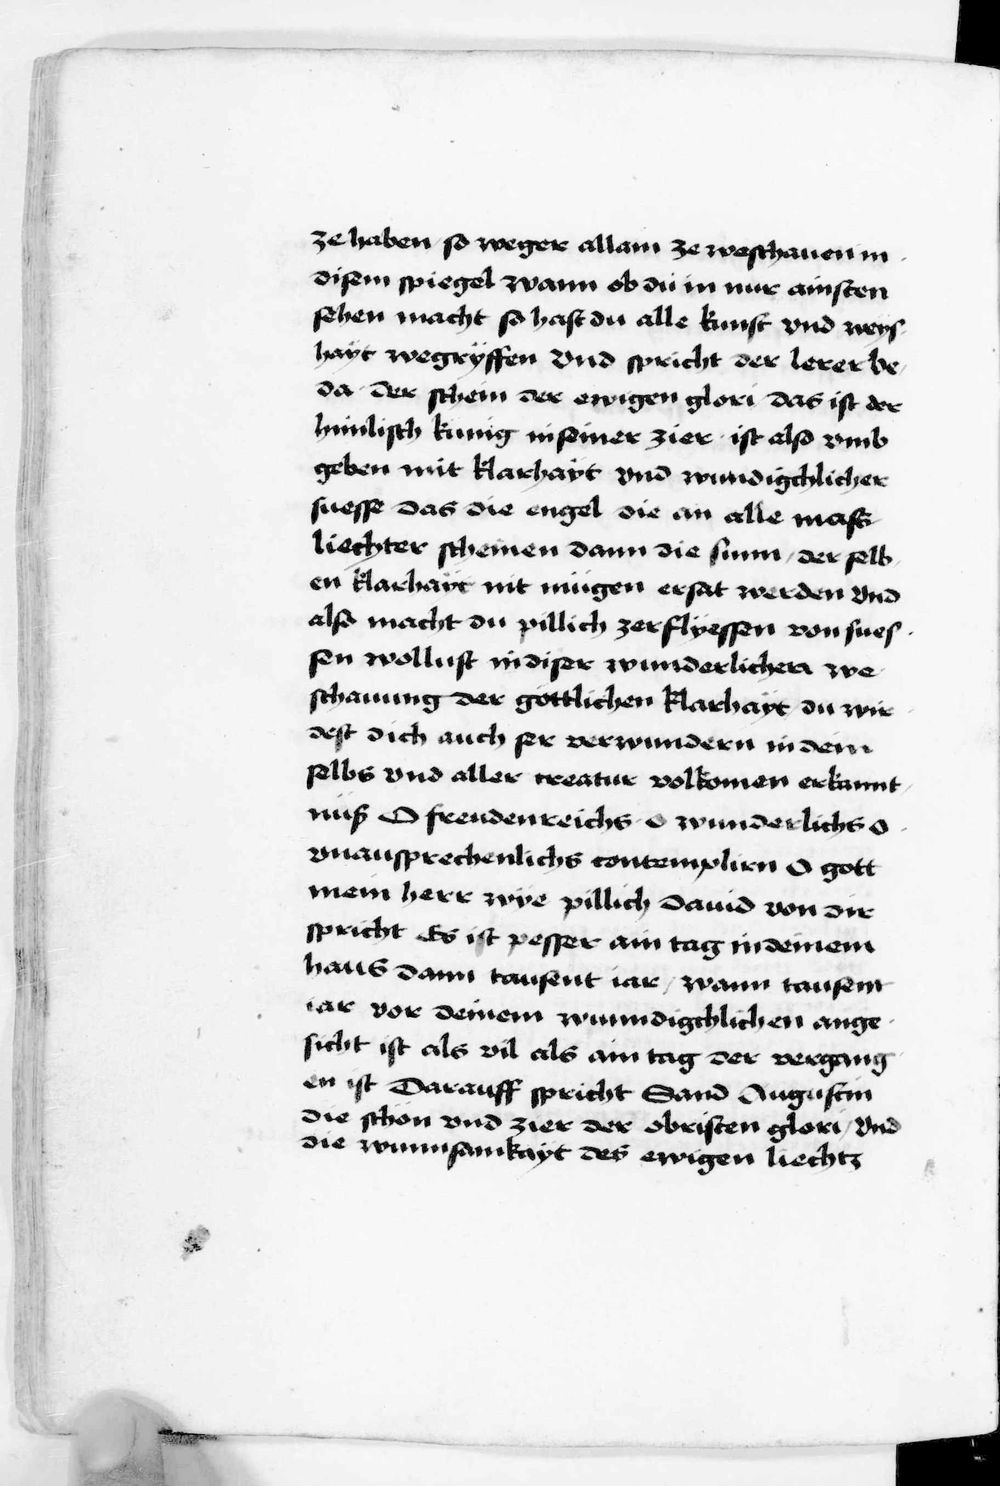 ze haben so weger allain ze weschauen in
disem spiegel wann ob du in nur ainsten
sehen macht so hast du alle kunst vnd weys
hayt wegryffen vnd spricht der lerer be
da der schein der ewigen glori das ist der
himlisch kunig in seiner zier · ist also vmb
geben mit klarhayt vnd wundigchlicher
suesse das die engel die an alle mass
liechter scheinen dann die sunn / der selb
en klarhayt nit mügen ersat werden vnd
also macht du pillich zerflyessen von sues
sen wollust in diser wunderlicher we
schauung der göttlichen klarhayt du wir
dest dich auch ser verwundern in dein
selbs vnd aller creatur volkomen erkannt
nüß O freudenreichs o wunderlichs o
vnaussprechenlichs contemplirn O gott
mein herr wye pillich dauid von dir
spricht Es ist pesser ain tag in deinem
haus dann tausent iar / wann tausent
iar vor deinem wunndigchlichen ange
sicht ist als vil als ain tag der vergang
en ist Darauff spricht Sand Augustin
die schon vnd zier der obristen glori / vnd
die wunnsamkayt des ewigen liechtz